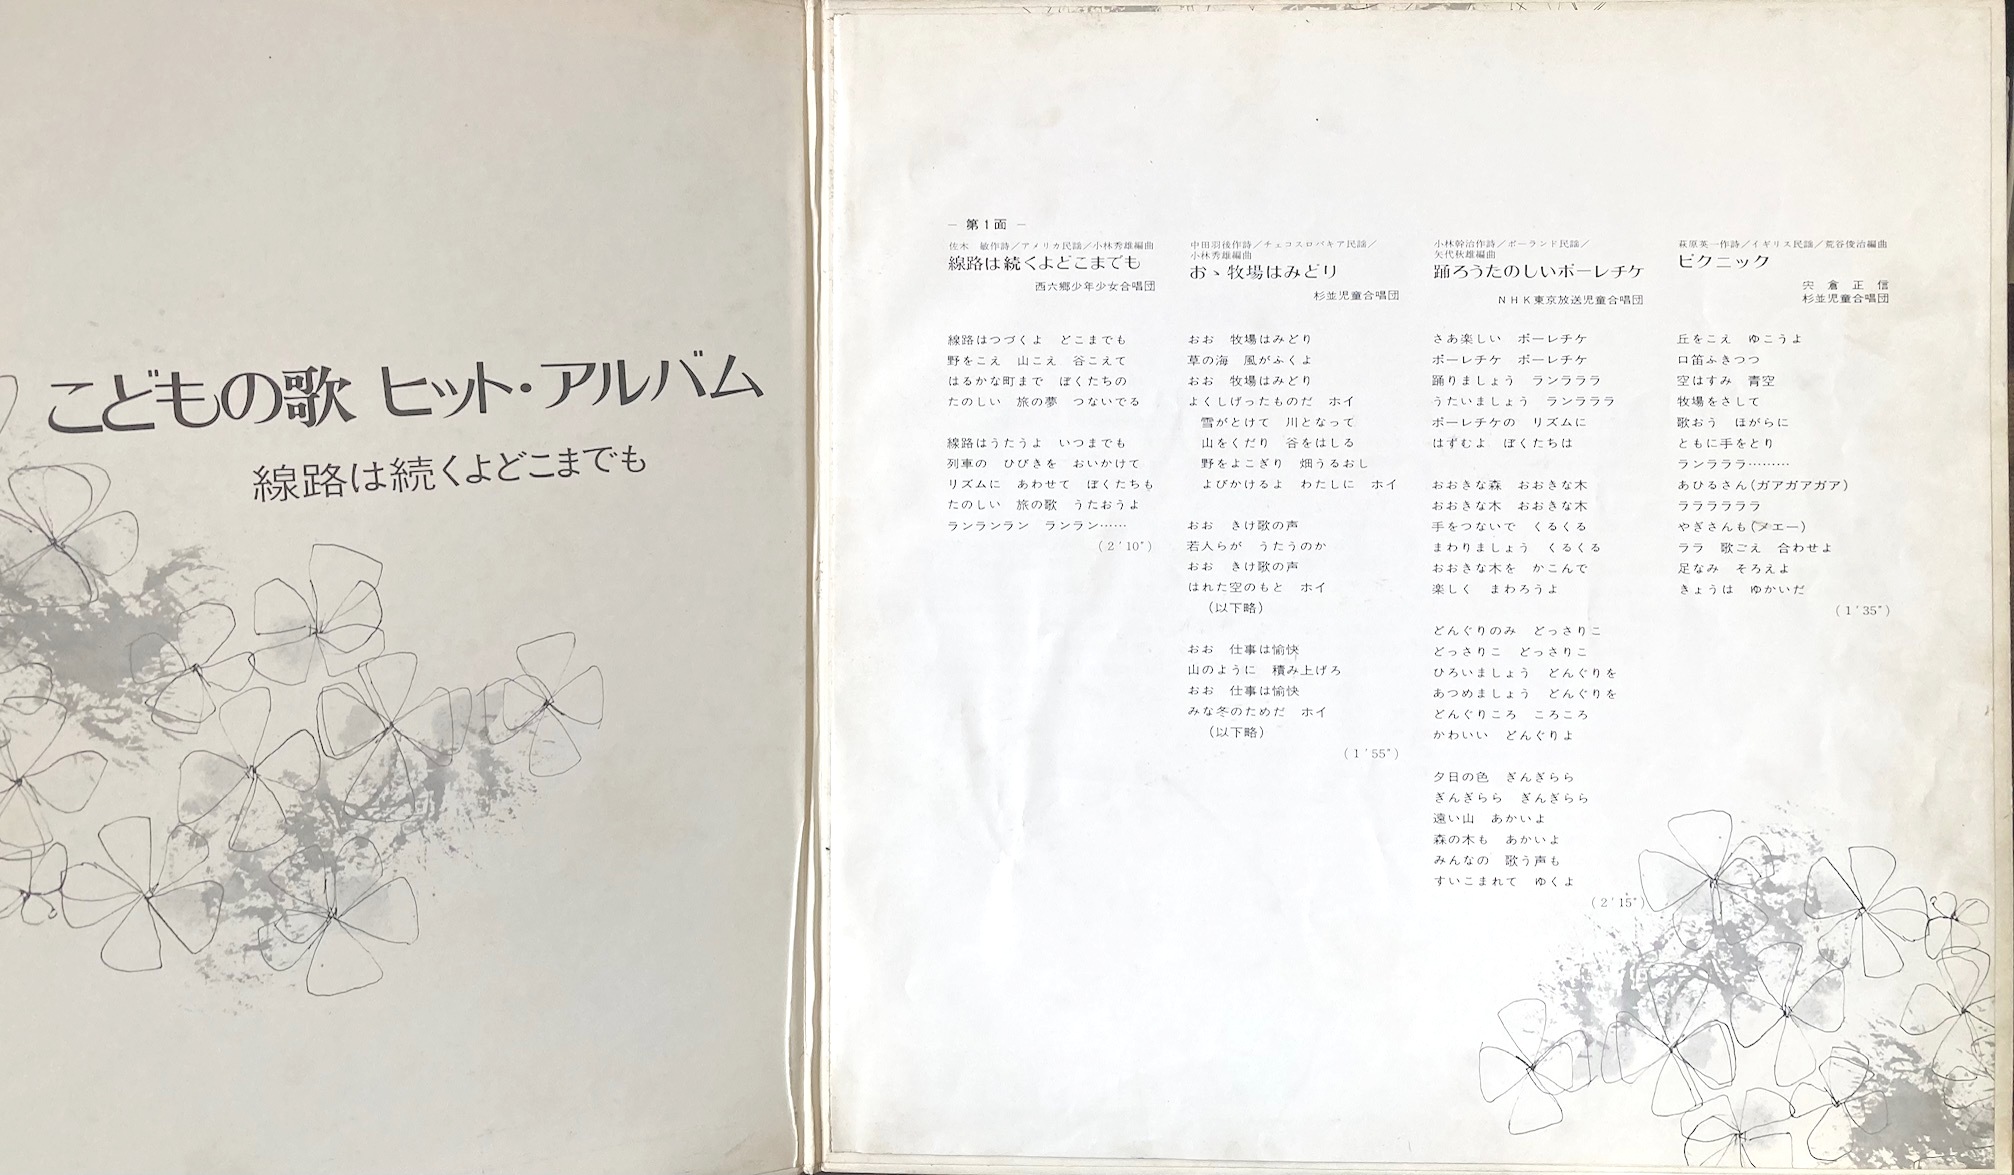 こどもの歌 ヒット・アルバム
線路は続くよどこまでも
― 第1面 ―
佐木　敏作詩／アメリカ民謡／小林秀雄編曲
線路は続くよどこまでも
西六郷少年少女合唱団
線路はつづくよ　どこまでも
野をこえ　山こえ　谷こえて
はるかな町まで　ぼくたちの
たのしい　旅の夢　つないでる
線路はうたうよ　いつまでも
列車の　ひびきを　おいかけて
リズムに　あわせて　ぼくたちも
たのしい　旅の歌　うたおうよ
ランランラン　ランラン……
(2'10")
中田羽後作詩／チェコスロバキア民謡／
小林秀雄編曲
おゝ牧場はみどり
杉並児童合唱団
おお　牧場はみどり
草の海　風がふくよ
おお　牧場はみどり
よくしげったものだ　ホイ
雪がとけて　川となって
山をくだり　谷をはしる
野をよこぎり　畑うるおし
よびかけるよ　わたしに　ホイ
おお　きけ歌の声
若人らが　うたうのか
おお　きけ歌の声
はれた空のもと　ホイ
(以下略)
おお　仕事は愉快
山のように　積み上げろ
おお　仕事は愉快
みな冬のためだ　ホイ
(以下略)
(1'55")
小林幹治作詩／ポーランド民謡／
矢代秋雄編曲
踊ろうたのしいポーレチケ
NHK東京放送児童合唱団
さあ楽しい　ポーレチケ
ポーレチケ　ポーレチケ
踊りましょう　ランラララ
うたいましょう　ランラララ
ポーレチケの　リズムに
はずむよ　ぼくたちは
おおきな森　おおきな木
おおきな木　おおきな木
手をつないで　くるくる
まわりましょう　くるくる
おおきな木を　かこんで
楽しく　まわろうよ
どんぐりのみ　どっさりこ
どっさりこ　どっさりこ
ひろいましょう　どんぐりを
あつめましょう　どんぐりを
どんぐりころ　ころころ
かわいい　どんぐりよ
夕日の色　ぎんぎらら
ぎんぎらら　ぎんぎらら
遠い山　あかいよ
森の木も　あかいよ
みんなの　歌う声も
すいこまれて　ゆくよ
(2'15")
萩原英一作詩／イギリス民謡／荒谷俊治編曲
ピクニック
宍倉正信
杉並児童合唱団
丘をこえ　ゆこうよ
口笛ふきつつ
空はすみ　青空
牧場をさして
歌おう　ほがらに
ともに手をとり
ランラララ………
あひるさん(ガアガアガア)
ララララララ
やぎさんも(メエー)
ララ　歌ごえ　合わせよ
足なみ　そろえよ
きょうは　ゆかいだ
(1'35")